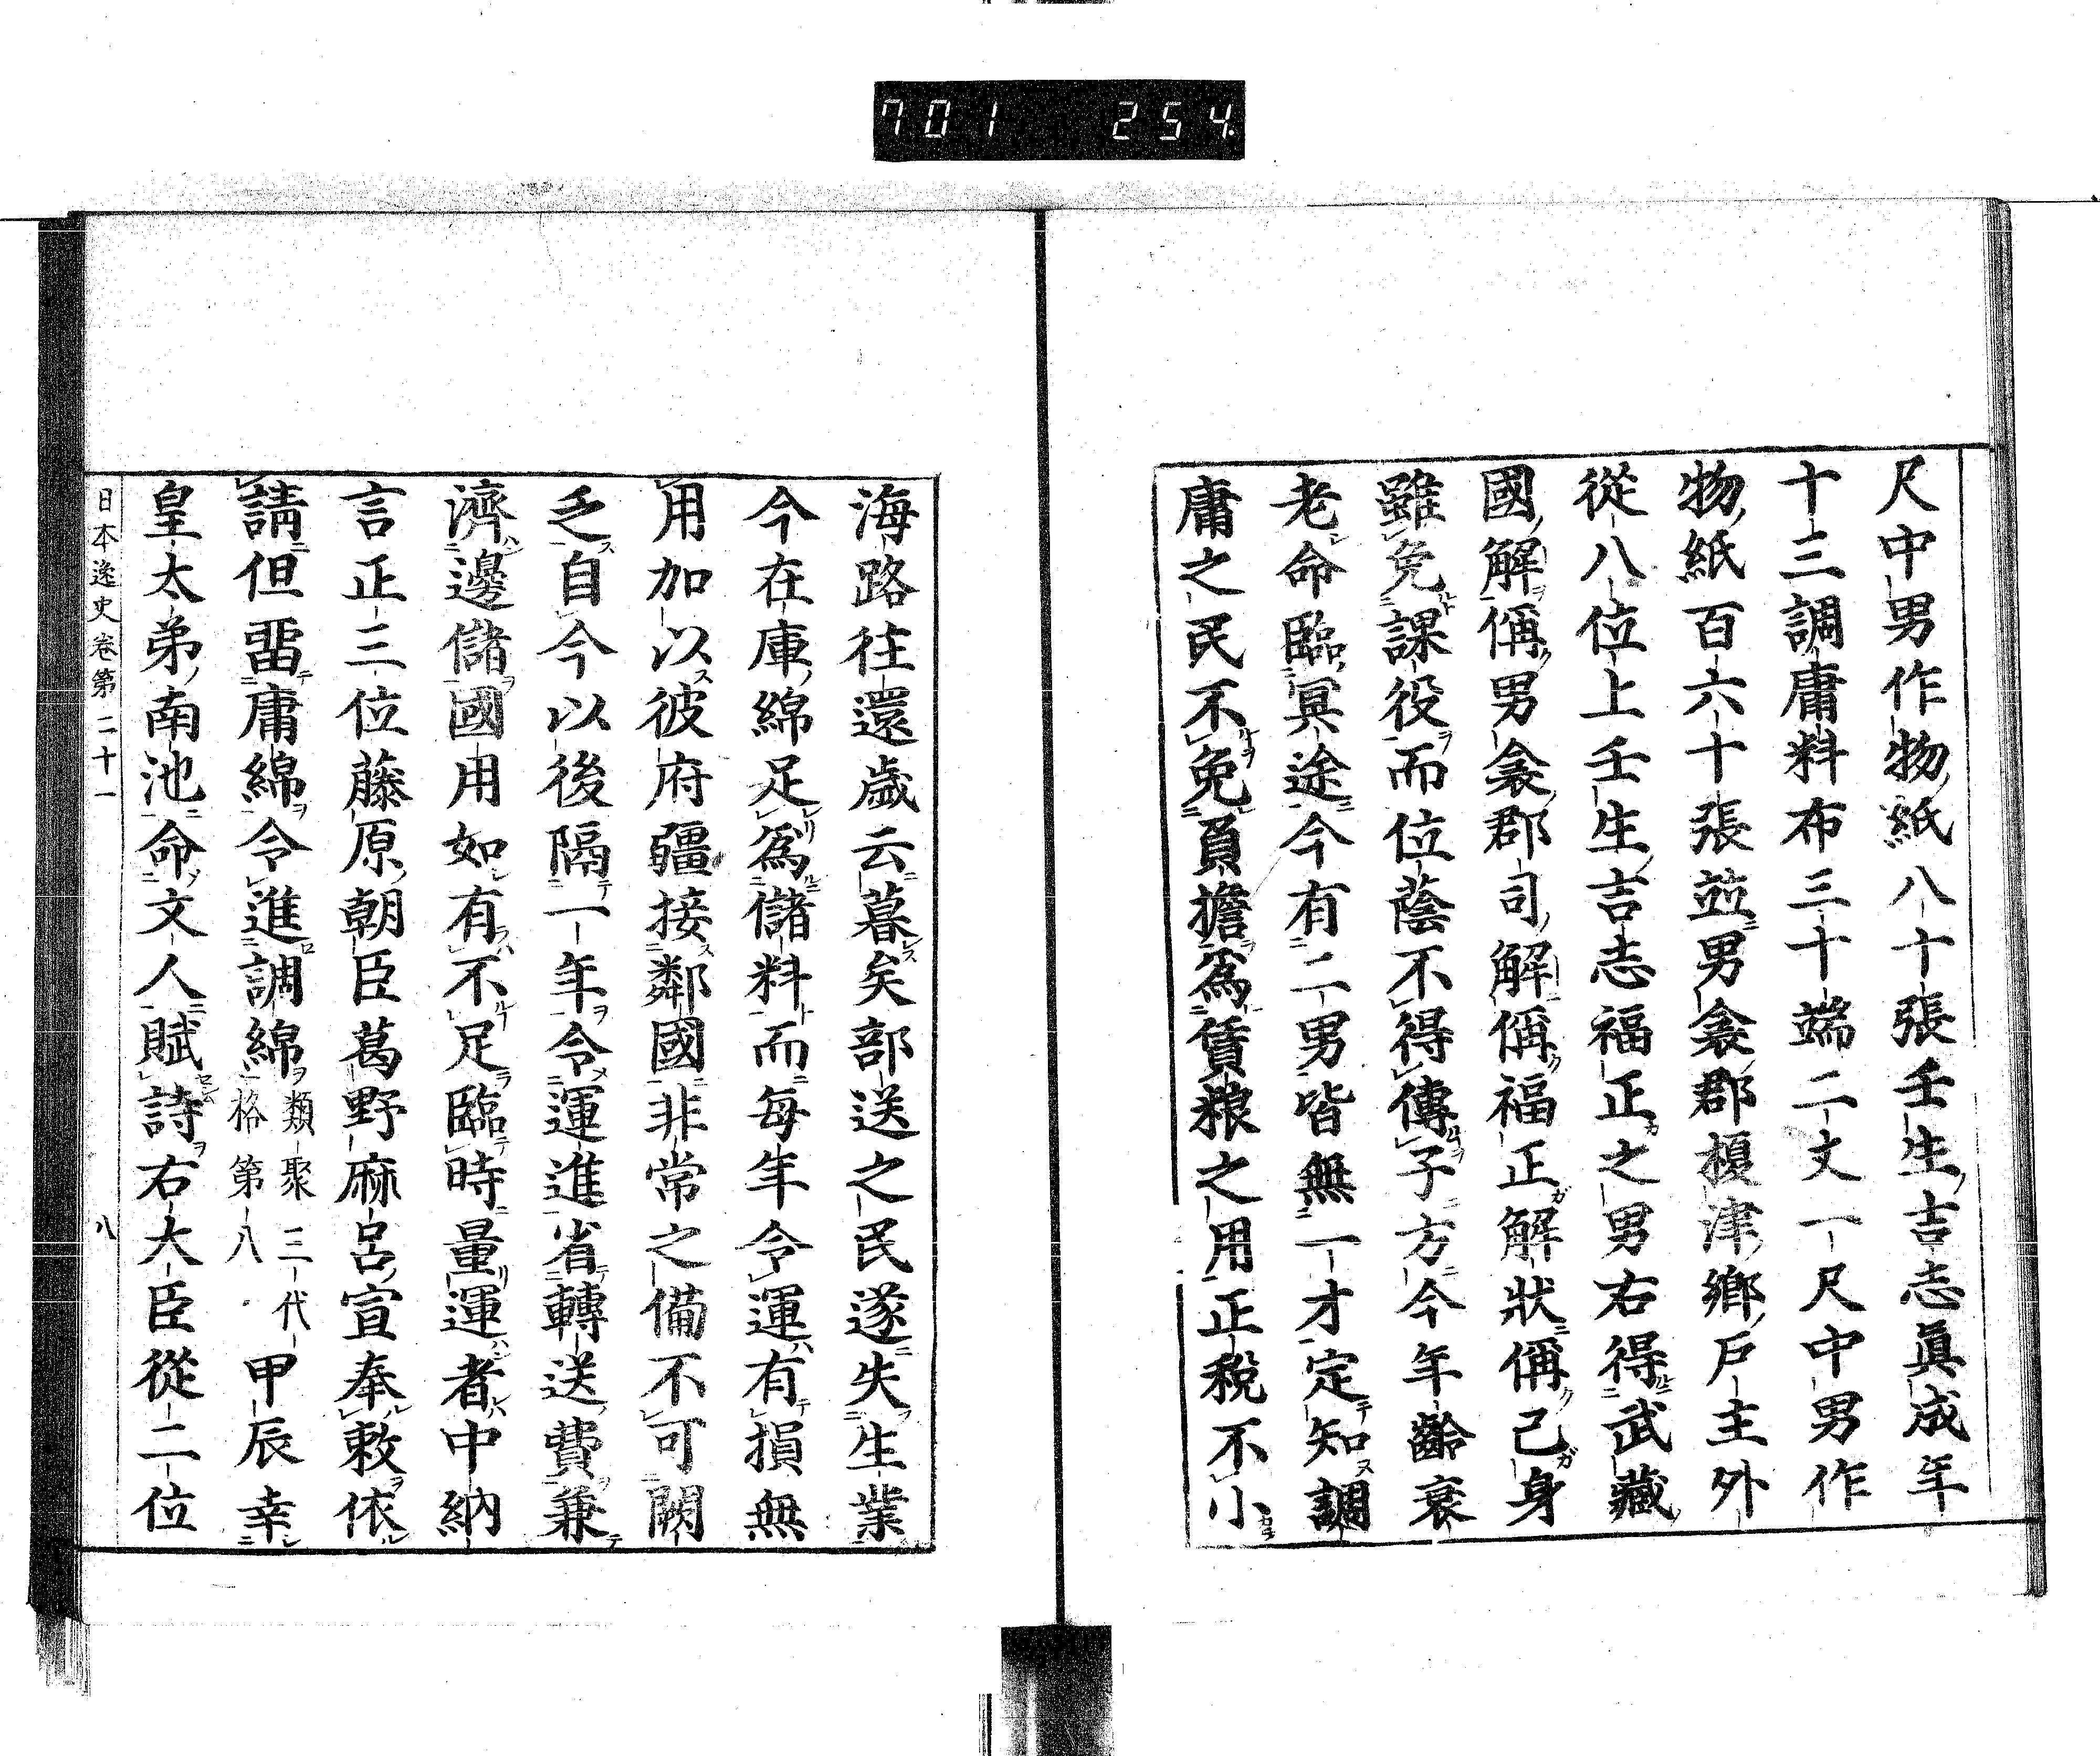 701 254
尺中男作物紙八十張壬生吉志眞成年
十三調庸料布三十端二丈一尺中男作
物紙百六十張並男衾郡榎津鄉戶主外
從八位上壬生吉志福正之男右得武藏
國解偁男衾郡司解偁福正解狀偁己身
雖免課役而位蔭不得傳子方今年齡衰
老命臨冥途今有二男皆無一才定知調
庸之民不免負擔爲賃粮之用正稅不小
海路往還歲云暮矣部送之民遂失生業
今在庫綿足爲儲料而每年令運有損無
用加以彼府疆接鄰國非常之備不可闕
乏自今以後隔一年令運進省轉送費兼
濟邊儲國用如有不足臨時量運者中納
言正三位藤原朝臣葛野麻呂宣奉敕依
請但畱庸綿令進調綿類聚三代格第八甲辰幸
皇太弟南池命文人賦詩右大臣從二位
日本逸史卷第二十一 八